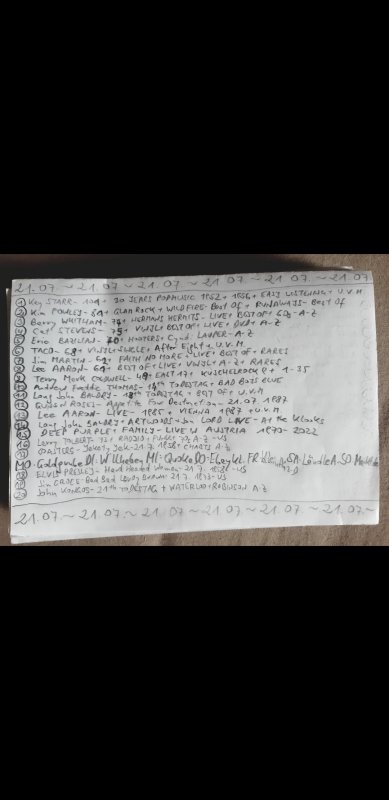 21.07 ~ 21.07 ~ 21.07 ~ 21.07 ~ 21.07 ~ 21.07 ~
① Kay STARR - 101 + 30 YEARS POPMUSIC 1952 + 1956 + EASY LISTENING + U.V.M
② Kim FOWLEY - GLAM ROCK + WILDFIRE - Best Of + RUNAWAYS - Best Of
③ Barry WHITHAM - HERMANS HERMITS - LIVE + BEST OF A-Z
④ Cat STEVENS - 75 + VINYL + BEST OF + LIVE + DVD + A-Z
⑤ Eric BAZILIAN - 70 + HOOTERS + Cyndi LAUPER - A-Z
⑥ TACO - 68 + VINYL + SINGLE + After Eight + U.V.M.
⑦ Jim MARTIN - 62 + FAITH NO MORE + LIVE + BEST OF + RARES
⑧ Lee AARON - 61 + BEST OF + LIVE + VINYL + A-Z + RARES
⑨ Terry Mark CALDWELL - 49 + EAST 17 + KUSCHELROCK 1-35
⑩ Andrew Freddie THOMAS - TODESTAG + BAD BOYS BLUE
⑪ Long John BALDRY - 18th TODESTAG + BEST OF + U.V.M
⑫ Guns N ROSES - Appetite For Destruction - 21.07. 1987
⑬ Lee AARON - LIVE - 1985 + VIENNA 1987 + U.V.M.
⑭ Long John BALDRY + ARTWOODS + Jon LORD LIVE - At the
⑮ DEEP PURPLE + FAMILY - LIVE IN AUSTRIA 1970 - 2022
⑯ Larry TOLBERT - 72 + RAYDIO + A-Z - US
⑰ COASTERS - Yakety Yak - 21.7. 1958 + CHARTS A-Z
MO: Goldgrube DI: W MI: DO: FR: SA: SO:
⑱ ELVIS PRESLEY - Hard Headed Woman - 21.7. 1958 - US
⑲ Jim CROCE - Bad Bad Leroy Brown 21.7. 1973 - US
⑳ John KONGOS - TODESTAG + WATERLOO + ROBINSON A-Z
21.07 ~ 21.07 ~ 21.07 ~ 21.07 ~ 21.07 ~ 21.07 ~